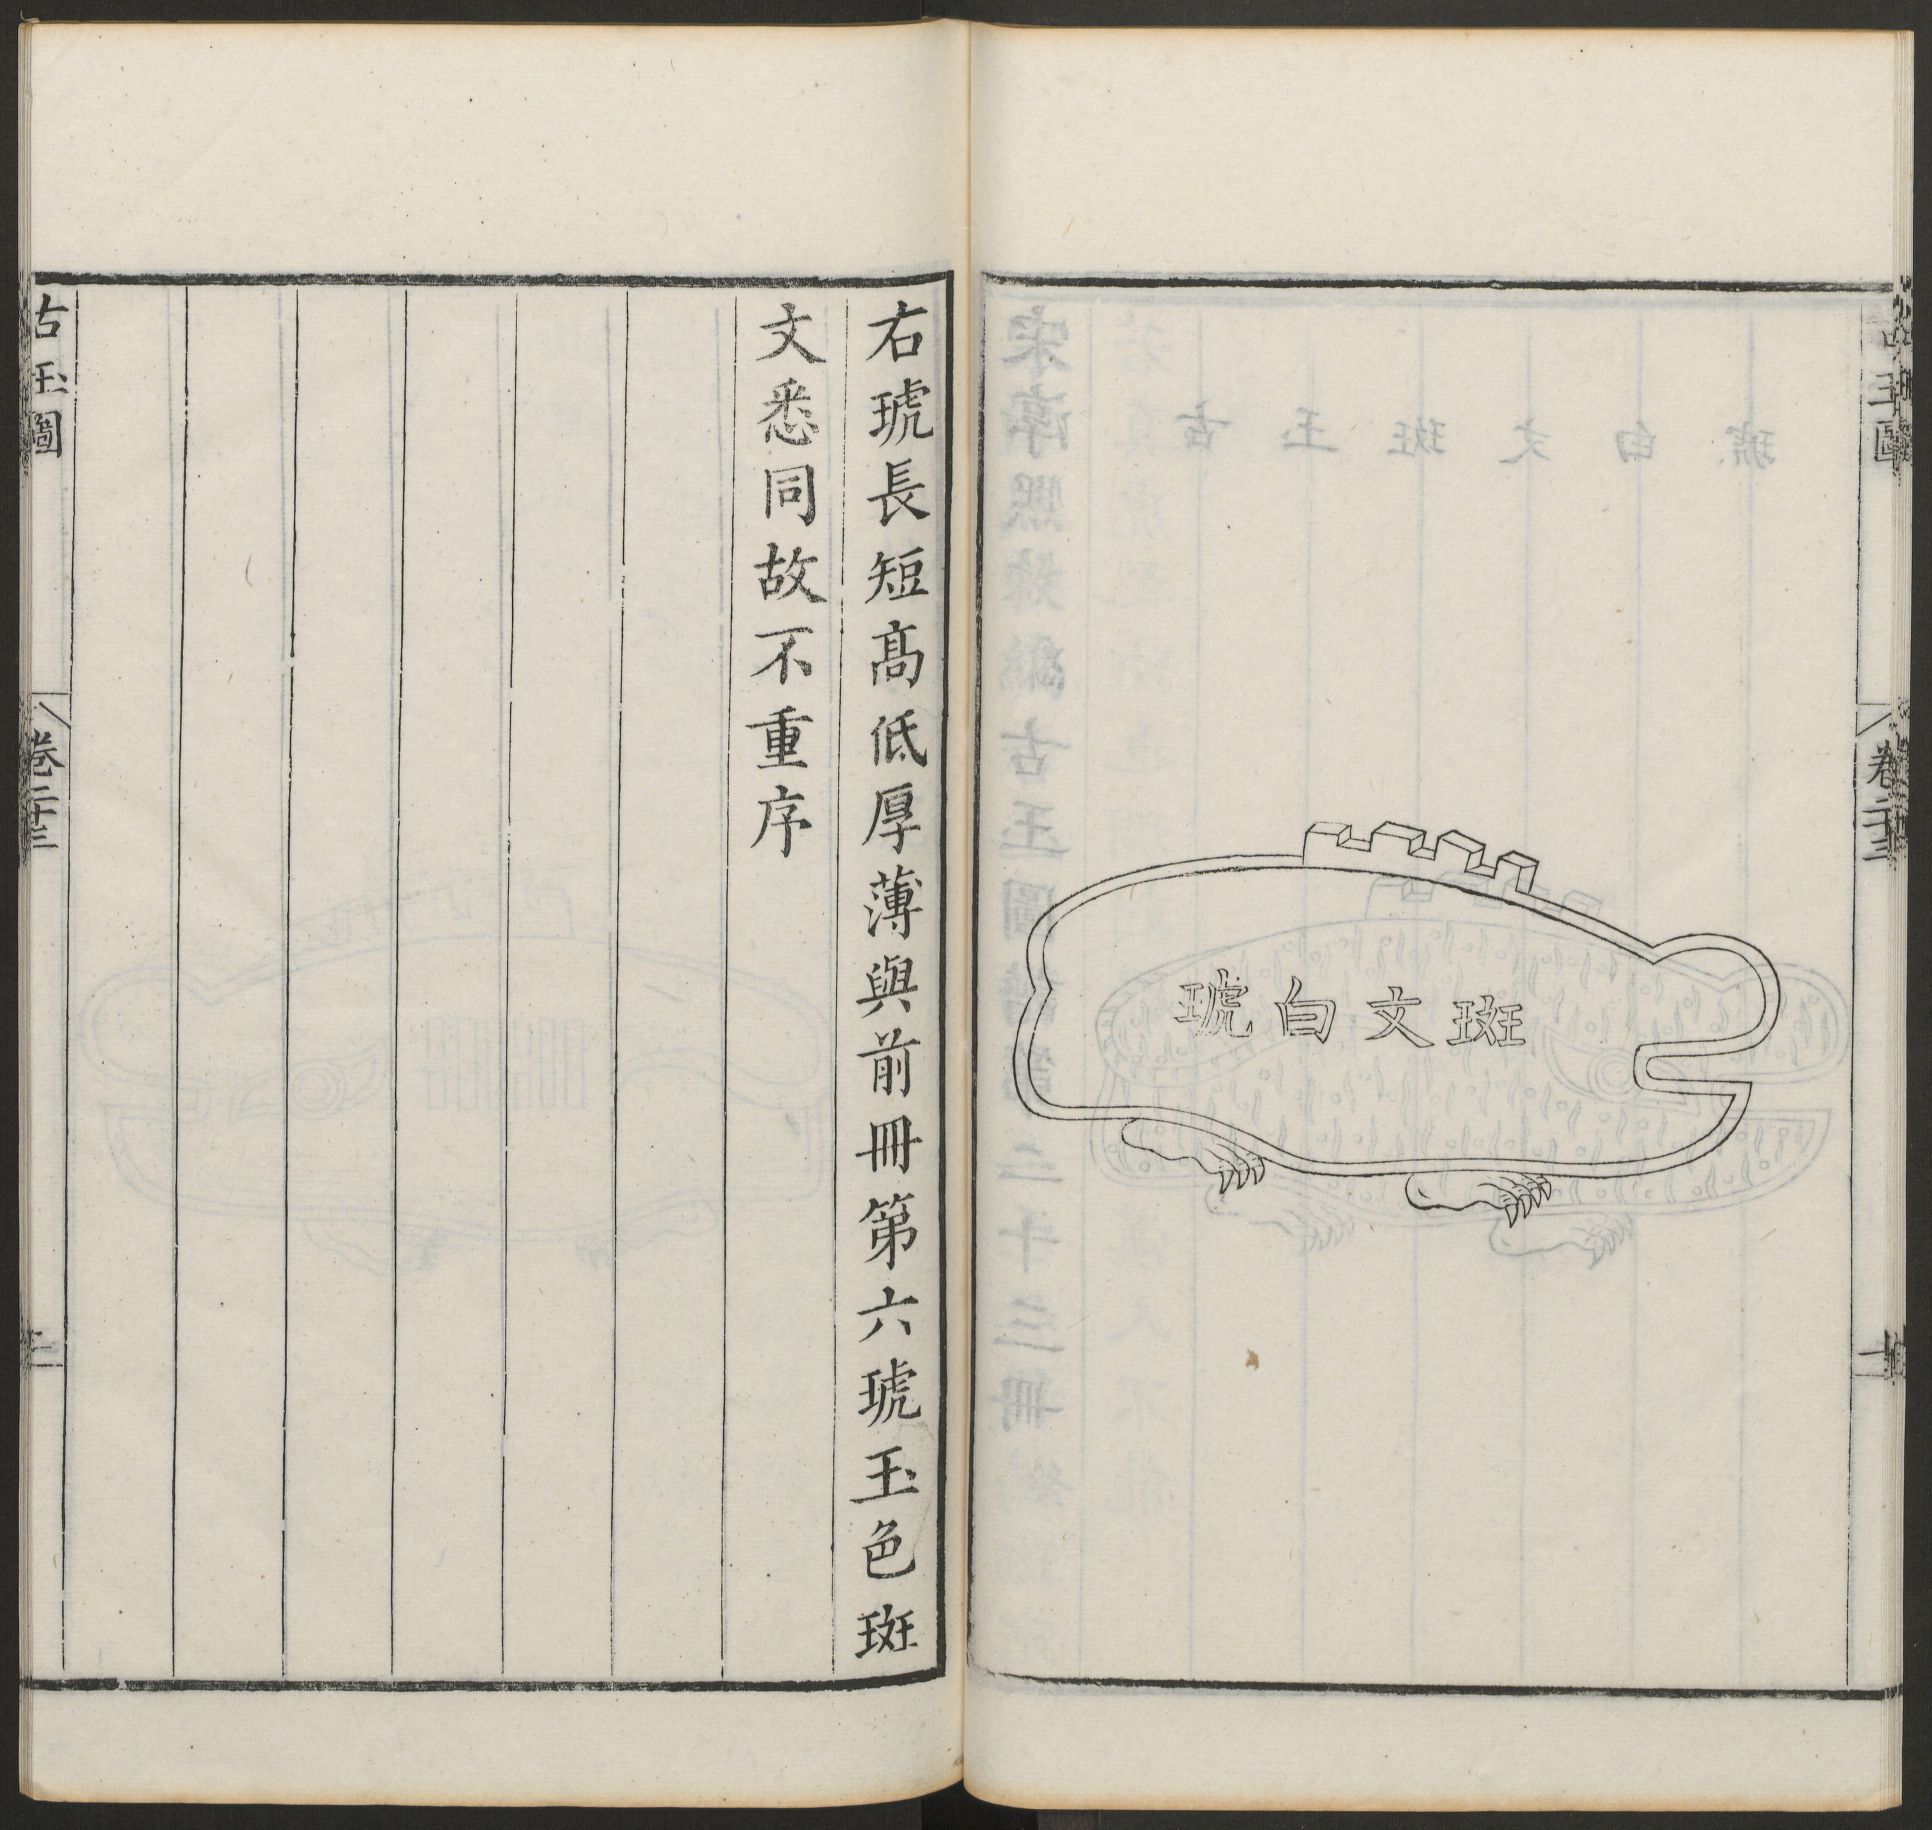 古玉圖 卷二十三
斑文白琥
右琥長短髙低厚薄與前冊第六琥玉色斑
文悉同故不重序
古玉圖 卷二十三